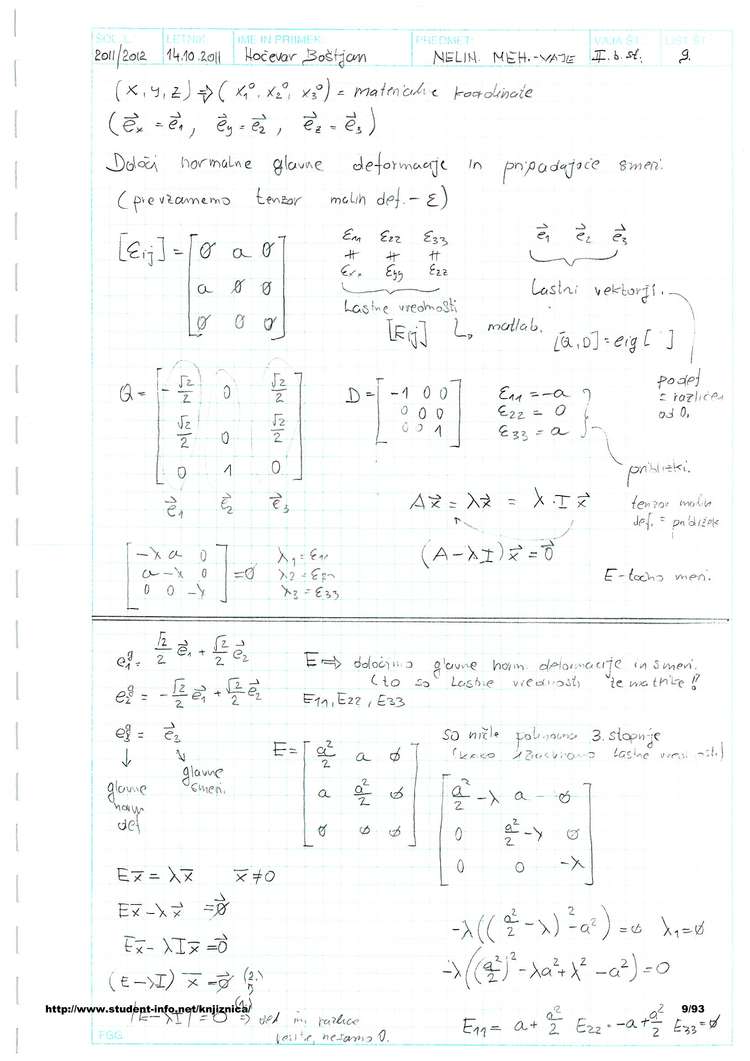 ŠOL. L. LETNIK IME IN PRIIMEK PREDMET VAJA ŠT. LIST ŠT.
2011/2012 14.10.2011 Hočevar Boštjan NELIN. MEH.-VAJE II. b. st. 9.
(x, y, z) => (x₁⁰, x₂⁰, x₃⁰) = materialne koordinate
(e⃗x = e⃗1, e⃗y = e⃗2, e⃗z = e⃗3)
Določi normalne glavne deformacije in pripadajoče smeri.
(prevzamemo tenzor malih def. - ε)
[εij] = [0 a 0
a 0 0
0 0 0]
ε11 ε22 ε33
# # #
εyy εzz
Lastne vrednosti
[Eij] ↳ matlab.
e⃗1 e⃗2 e⃗3
Lastni vektorji.
[Q,D] = eig [ ]
podet
= različen
od 0.
Q = [-√2/2 0 √2/2
√2/2 0 √2/2
0 1 0]
e⃗1 e⃗2 e⃗3
D = [-1 0 0
0 0 0
0 0 1]
ε11 = -a
ε22 = 0
ε33 = a
približki.
tenzor malih
def. = približek
E - točno meri.
Ax⃗ = λx⃗ = λ·I x⃗
(A - λI)x⃗ = 0⃗
[-λ a 0
a -λ 0
0 0 -λ] = 0
λ1 = ε11
λ2 = ε22
λ3 = ε33
e1g = √2/2 e⃗1 + √2/2 e⃗2
e2g = -√2/2 e⃗1 + √2/2 e⃗2
e3g = e⃗2
↓
glavne
norm
def
glavne
smeri.
E => določimo glavne norm. deformacije in smeri.
(to so lastne vrednosti te matrike!!
E11, E22, E33
E = [a²/2 a 0
a a²/2 0
0 0 0]
so ničle polinoma 3. stopnje
(kako izračunamo lastne vrednosti)
[a²/2 - λ a 0
0 a²/2 - λ 0
0 0 -λ]
Ex⃗ = λx⃗ x⃗ ≠ 0
Ex⃗ - λx⃗ = 0⃗
Ex⃗ - λIx⃗ = 0⃗
(E - λI) x⃗ = 0⃗ (2.)
|E - λI| = 0 => (1.)
-λ((a²/2 - λ)² - a²) = 0 λ1 = 0
-λ((a²/2)² - λa² + λ² - a²) = 0
E11 = a + a²/2 E22 = -a + a²/2 E33 = 0
http://www.student-info.net/knjiznica/ 9/93
FGG